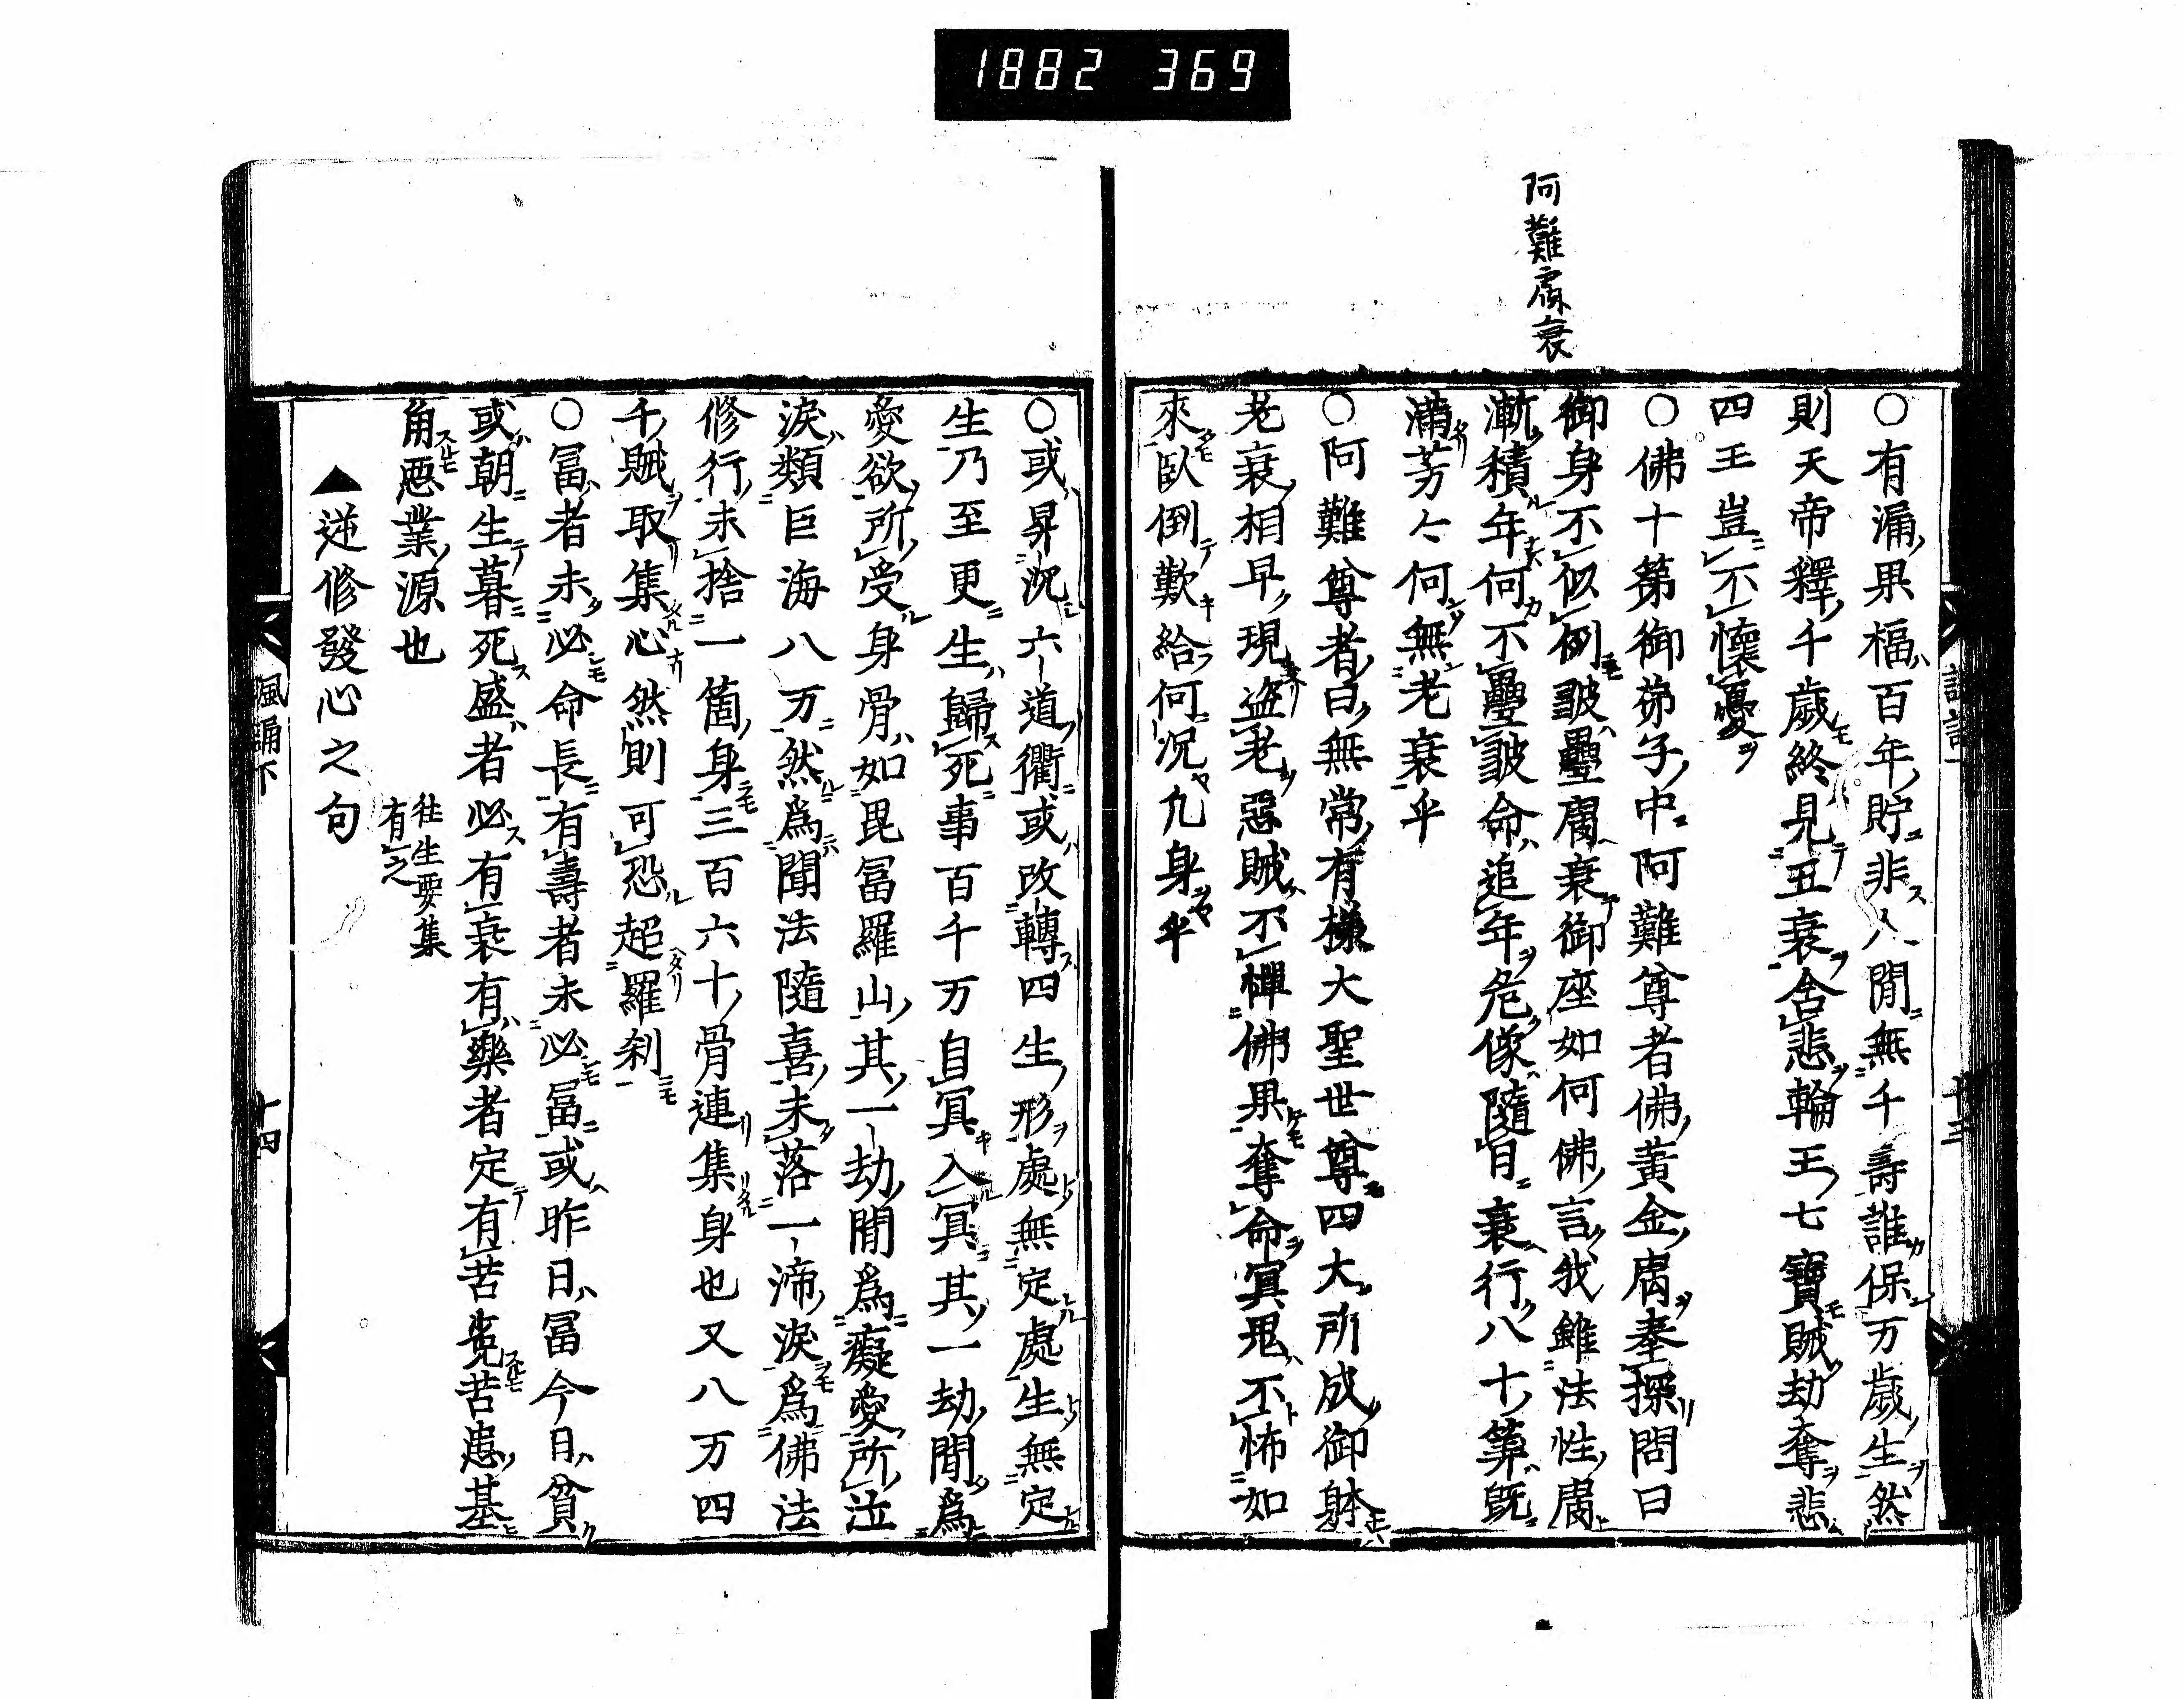 1882 369
阿難膚衰
○有漏果福百年貯非人間無千壽誰保万歳生然
則天帝釋千歳終見五衰含悲輪王七寳賊劫奪悲
四王豈不懷憂
○佛十第御弟子中阿難尊者佛黄金膚奉探問曰
御身不似例皺疊膚衰御座如何佛言我雖法性膚
漸積年何不疊皺命追年危像隨日衰行八十筭既
滿芳々何無老衰乎
○阿難尊者曰無常有樣大聖世尊四大所成御躰
老衰相早現盗老惡賊不憚佛果奪命冥鬼不怖如
來臥倒歎給何況凡身乎
○或昇沉六道衢或改轉四生形處無定處生無定
生乃至更生歸死事百千万自冥入冥其一劫間爲
愛欲所受身骨如毘冨羅山其一劫間爲癡愛所泣
淚類巨海八万然爲聞法隨喜未落一渧淚爲佛法
修行未捨一箇身三百六十骨連集身也又八万四
千賊取集心然則可恐超羅刹
○冨者未必命長有壽者未必冨或昨日冨今日貧
或朝生暮死盛者必有衰有樂者定有苦覓苦患基
角惡業源也
往生要集
有之
▲逆修發心之句
諷誦下
十四